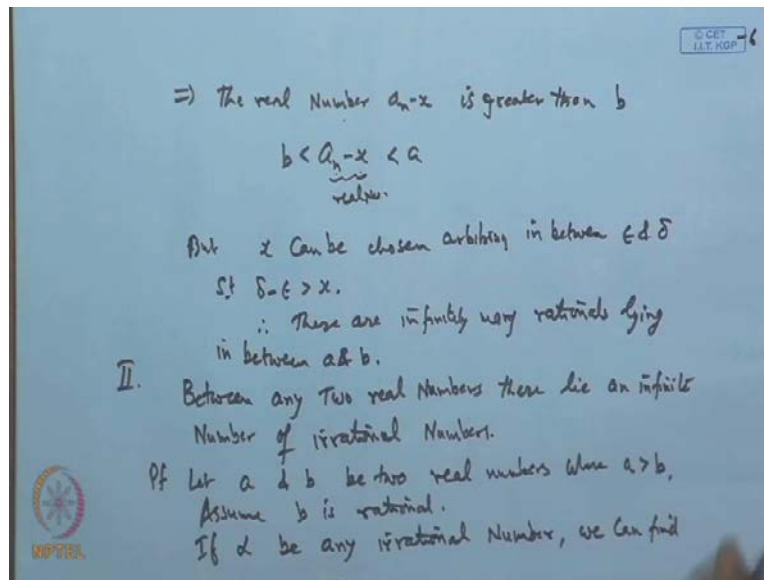 © CET
I.I.T. KGP
-6
=) The real Number aₙ-x is greater than b
b < aₙ-x < a
real no.
But x can be chosen arbitrary in between ϵ & δ
s.t δ-ϵ > x.
∴ There are infinitely many rationals lying
in between a & b.
II. Between any Two real Numbers there lie an infinite
Number of irrational Numbers.
Pf Let a & b be two real numbers where a > b,
Assume b is rational.
If α be any irrational Number, we can find
NPTEL